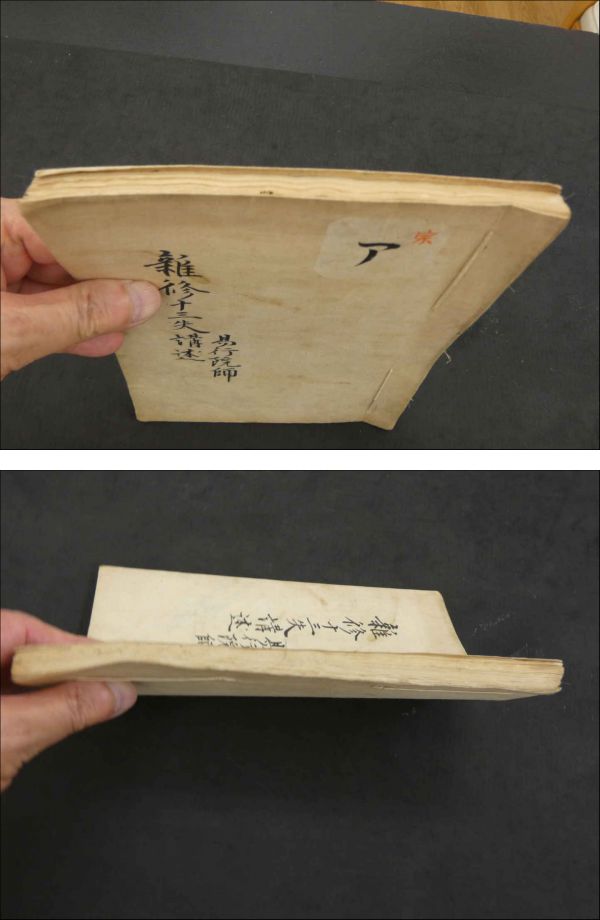 宗
ア
雜修十三失講述
易行院師
雜修十三失講述
易行院師